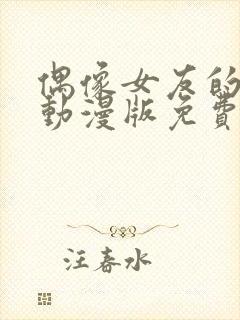 偶像女友的
動漫版免費
汪春水